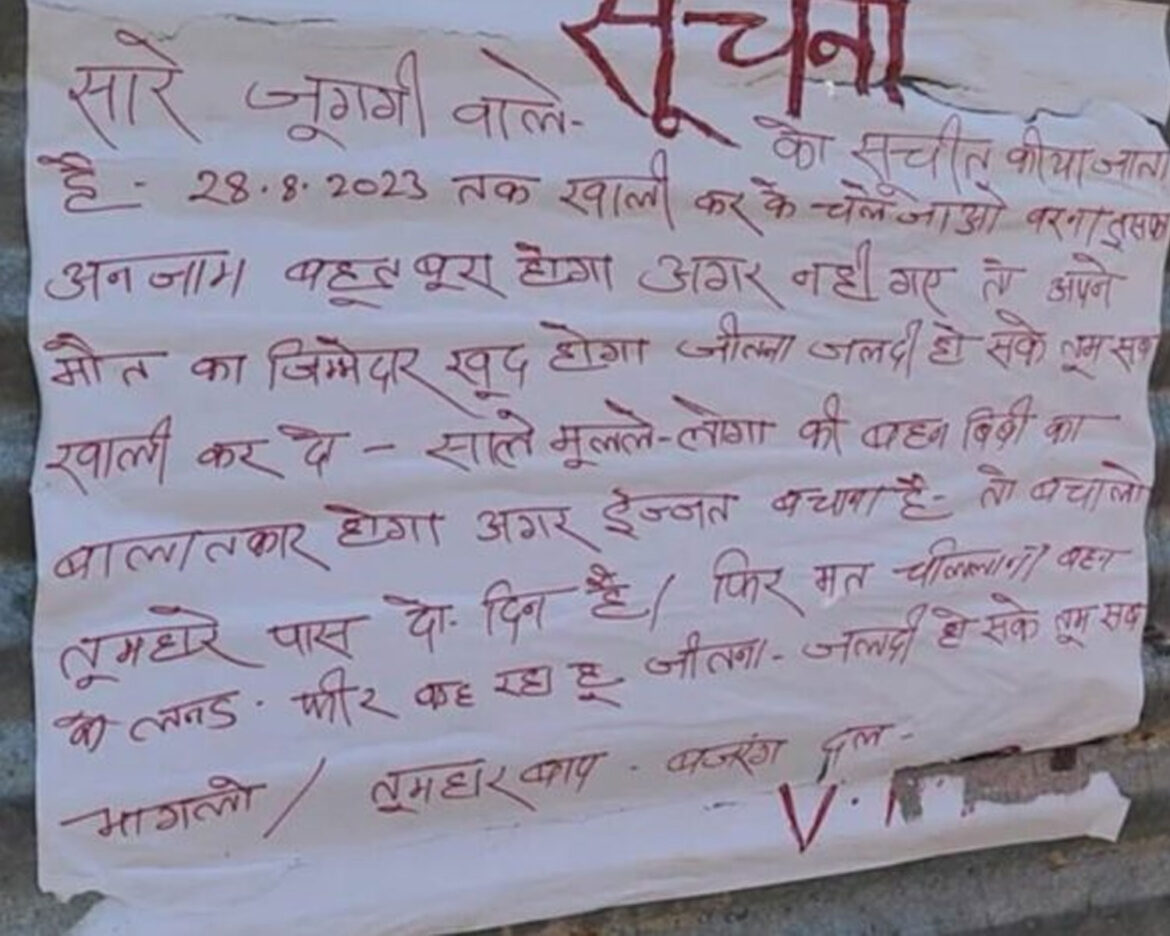 सूचना
सारे जूगगी वाले-
को सूचीत कीया जाता
है - 28.8.2023 तक खाली कर के चले जाओ वरना इसका
अनजाम बहूत बूरा होगा अगर नही गए तो अपने
मौत का जिम्मेदार खूद होगा जीतना जलदी हो सके तूम सब
खाली कर दो - साले मूलले-लोगा की बहन बिबी का
बालातकार होगा अगर ईज्जत बचाना है- तो बचालो
तूमहारे पास दो. दिन है/ फिर मत चीललाना बहन
के लनड. फीर कह रहा हू जीतना - जलदी हो सके तूम सब
भागलो / तूमहार बाप . बजरंग दल -
V.